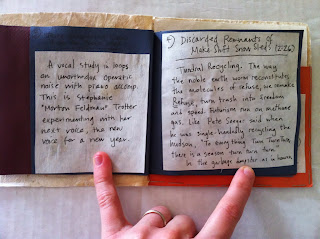 A vocal study in loops
on unorthodox operatic
noise with piano accomp.
This is Stephanie
"Morton Feldman" Trotter
experimenting with her
next voice, the new
voice for a new year.
Discarded Remnants of
Make Shift Snow Sleds (2:26)
Tundral Recycling. The way
the noble earth worm reconstitutes
the molecules of refuse, we remake
Refuse, turn trash into freedom
and speed. Futurism run on methane
gas. Like Pete Seeger said when
he was single handedly recycling the
hudson, "To everything Turn Turn Turn,
there is a season turn turn turn"
In the garbage dumpster as in heaven